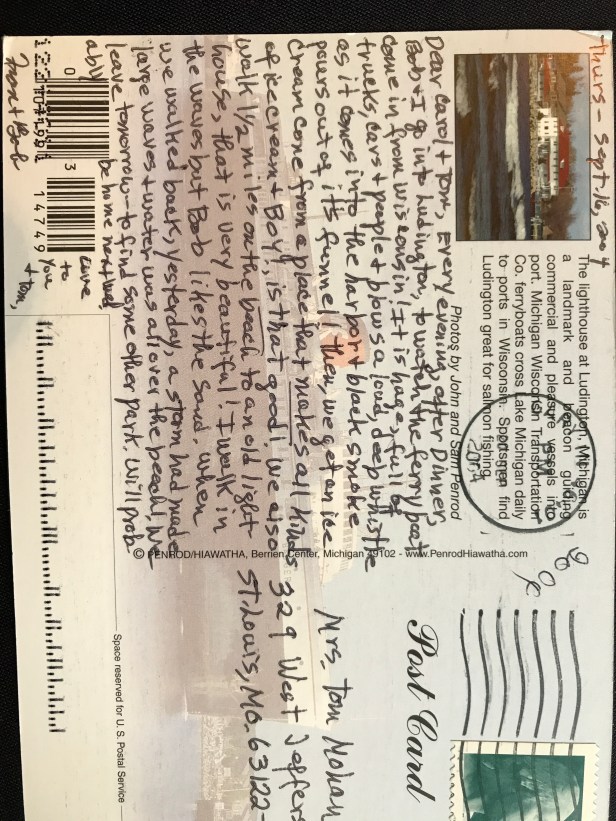 Thurs - Sept. 16, 2004
The lighthouse at Ludington, Michigan, is
a landmark and beacon guiding
commercial and pleasure vessels into
port. Michigan Wisconsin Transportation
Co. ferryboats cross Lake Michigan daily
to ports in Wisconsin. Sportsmen find
Ludington great for salmon fishing.
Photos by John and Sam Penrod
Dear Carol + Tom, Every evening, after Dinner,
Bob + I go into Ludington, to watch the ferry boat
come in from Wisconsin! It is huge, full of
trucks, cars + people + blows a loud, deep whistle
as it comes into the harbor + black smoke
pours out of it's funnel! then we get an ice
cream cone from a place that makes all kinds
of ice cream + Boy!, is that good! we also
walk 1 1/2 miles on the beach to an old light
house, that is very beautiful! I walk in
the waves but Bob likes the sand. when
we walked back, yesterday, a storm had made
large waves + water was all over the beach! we
leave tomorrow - to find some other park. will prob
ably be home next
Love
to
you
+ Tom,
+ Bob
0 3 14749
© PENROD/HIAWATHA, Berrien Center, Michigan 49102 - www.PenrodHiawatha.com
Post Card
2004
Mrs. Tom Mohan
329 West Jeffers
St. Louis, Mo. 63122-
Space reserved for U. S. Postal Service